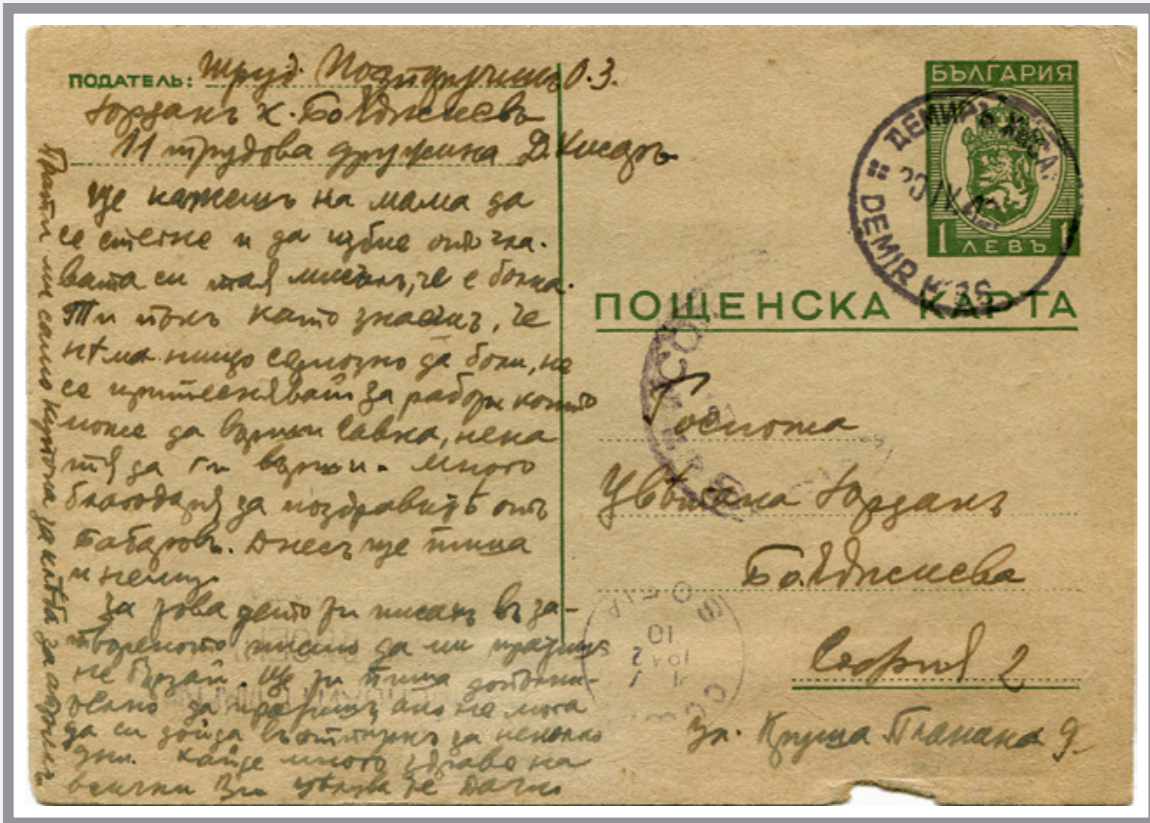 ПОДАТЕЛЬ: Труд. Подпоручикъ О.З.
Юрданъ х. Бояджиевъ
11 трудова дружина Д. Хисаръ
Ще кажешъ на мама да
се стегне и да избие отъ гла-
вата си тая мисъль, че е болна.
Ти пъкъ като знаешъ, че
нѣма нищо сериозно да боли, не
се притеснявай за работи които
може да върши Савка, нека
тя да ги върши. Много
благодаря за поздравитѣ отъ
Табаровъ. Днесъ ще пиша
и нему.
За това дето ти писахъ въ за-
твореното писмо да ми пратишъ
не бързай. Ще ти пиша допълни-
телно да пратишъ ако не мога
да си дойда въ отпускъ за няколко
дни. Хайде много здраве на
всички Ви цѣлува те Данчо
Прати ми само купона за хлѣба за априлъ
БЪЛГАРИЯ
1 ЛЕВЪ 1
ДЕМИРЪ ХИСАР
DEMIR HISS
ПОЩЕНСКА КАРТА
Госпожа
Цвѣтана Юрданъ
Бояджиева
София 2
ул. Круша Планина 9
SOF
10